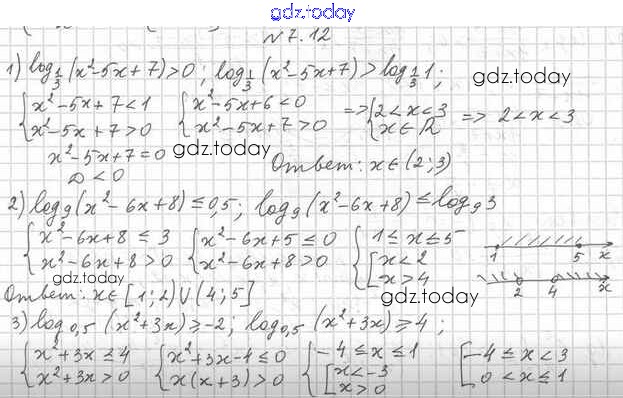 gdz.today
№7.12
1) log_{1/3}(x²-5x+7)>0; log_{1/3}(x²-5x+7)>log_{1/3}1;
gdz.today
{x²-5x+7<1 {x²-5x+6<0 =>{2<x<3 => 2<x<3
{x²-5x+7>0 {x²-5x+7>0 {x∈R
x²-5x+7=0 gdz.today
D<0 Ответ: x∈(2;3)
2) log₉(x²-6x+8)≤0,5; log₉(x²-6x+8)≤log₉3
{x²-6x+8≤3 {x²-6x+5≤0 {1≤x≤5 1 5 x
{x²-6x+8>0 {x²-6x+8>0 {[x<2
[x>4 2 4 x
gdz.today
Ответ: x∈[1;2)∪(4;5]
gdz.today
3) log_{0,5}(x²+3x)≥-2; log_{0,5}(x²+3x)≥4;
{x²+3x≤4 {x²+3x-4≤0 {-4≤x≤1 [-4≤x<3
{x²+3x>0 {x(x+3)>0 {[x<-3 [0<x≤1
[x>0
gdz.today